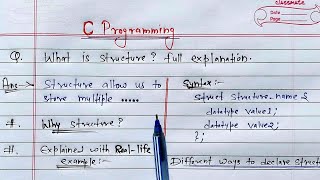 classmate
Date
Page
C Programming
Q. What is structure? full explanation.
Ans:-> Structure allow us to
store multiple .....
#. Why structure?
#. Explained with Real-life
example:-
Syntax:-
struct structure_name {
datatype value1;
datatype value2;
};
Different ways to declare struct